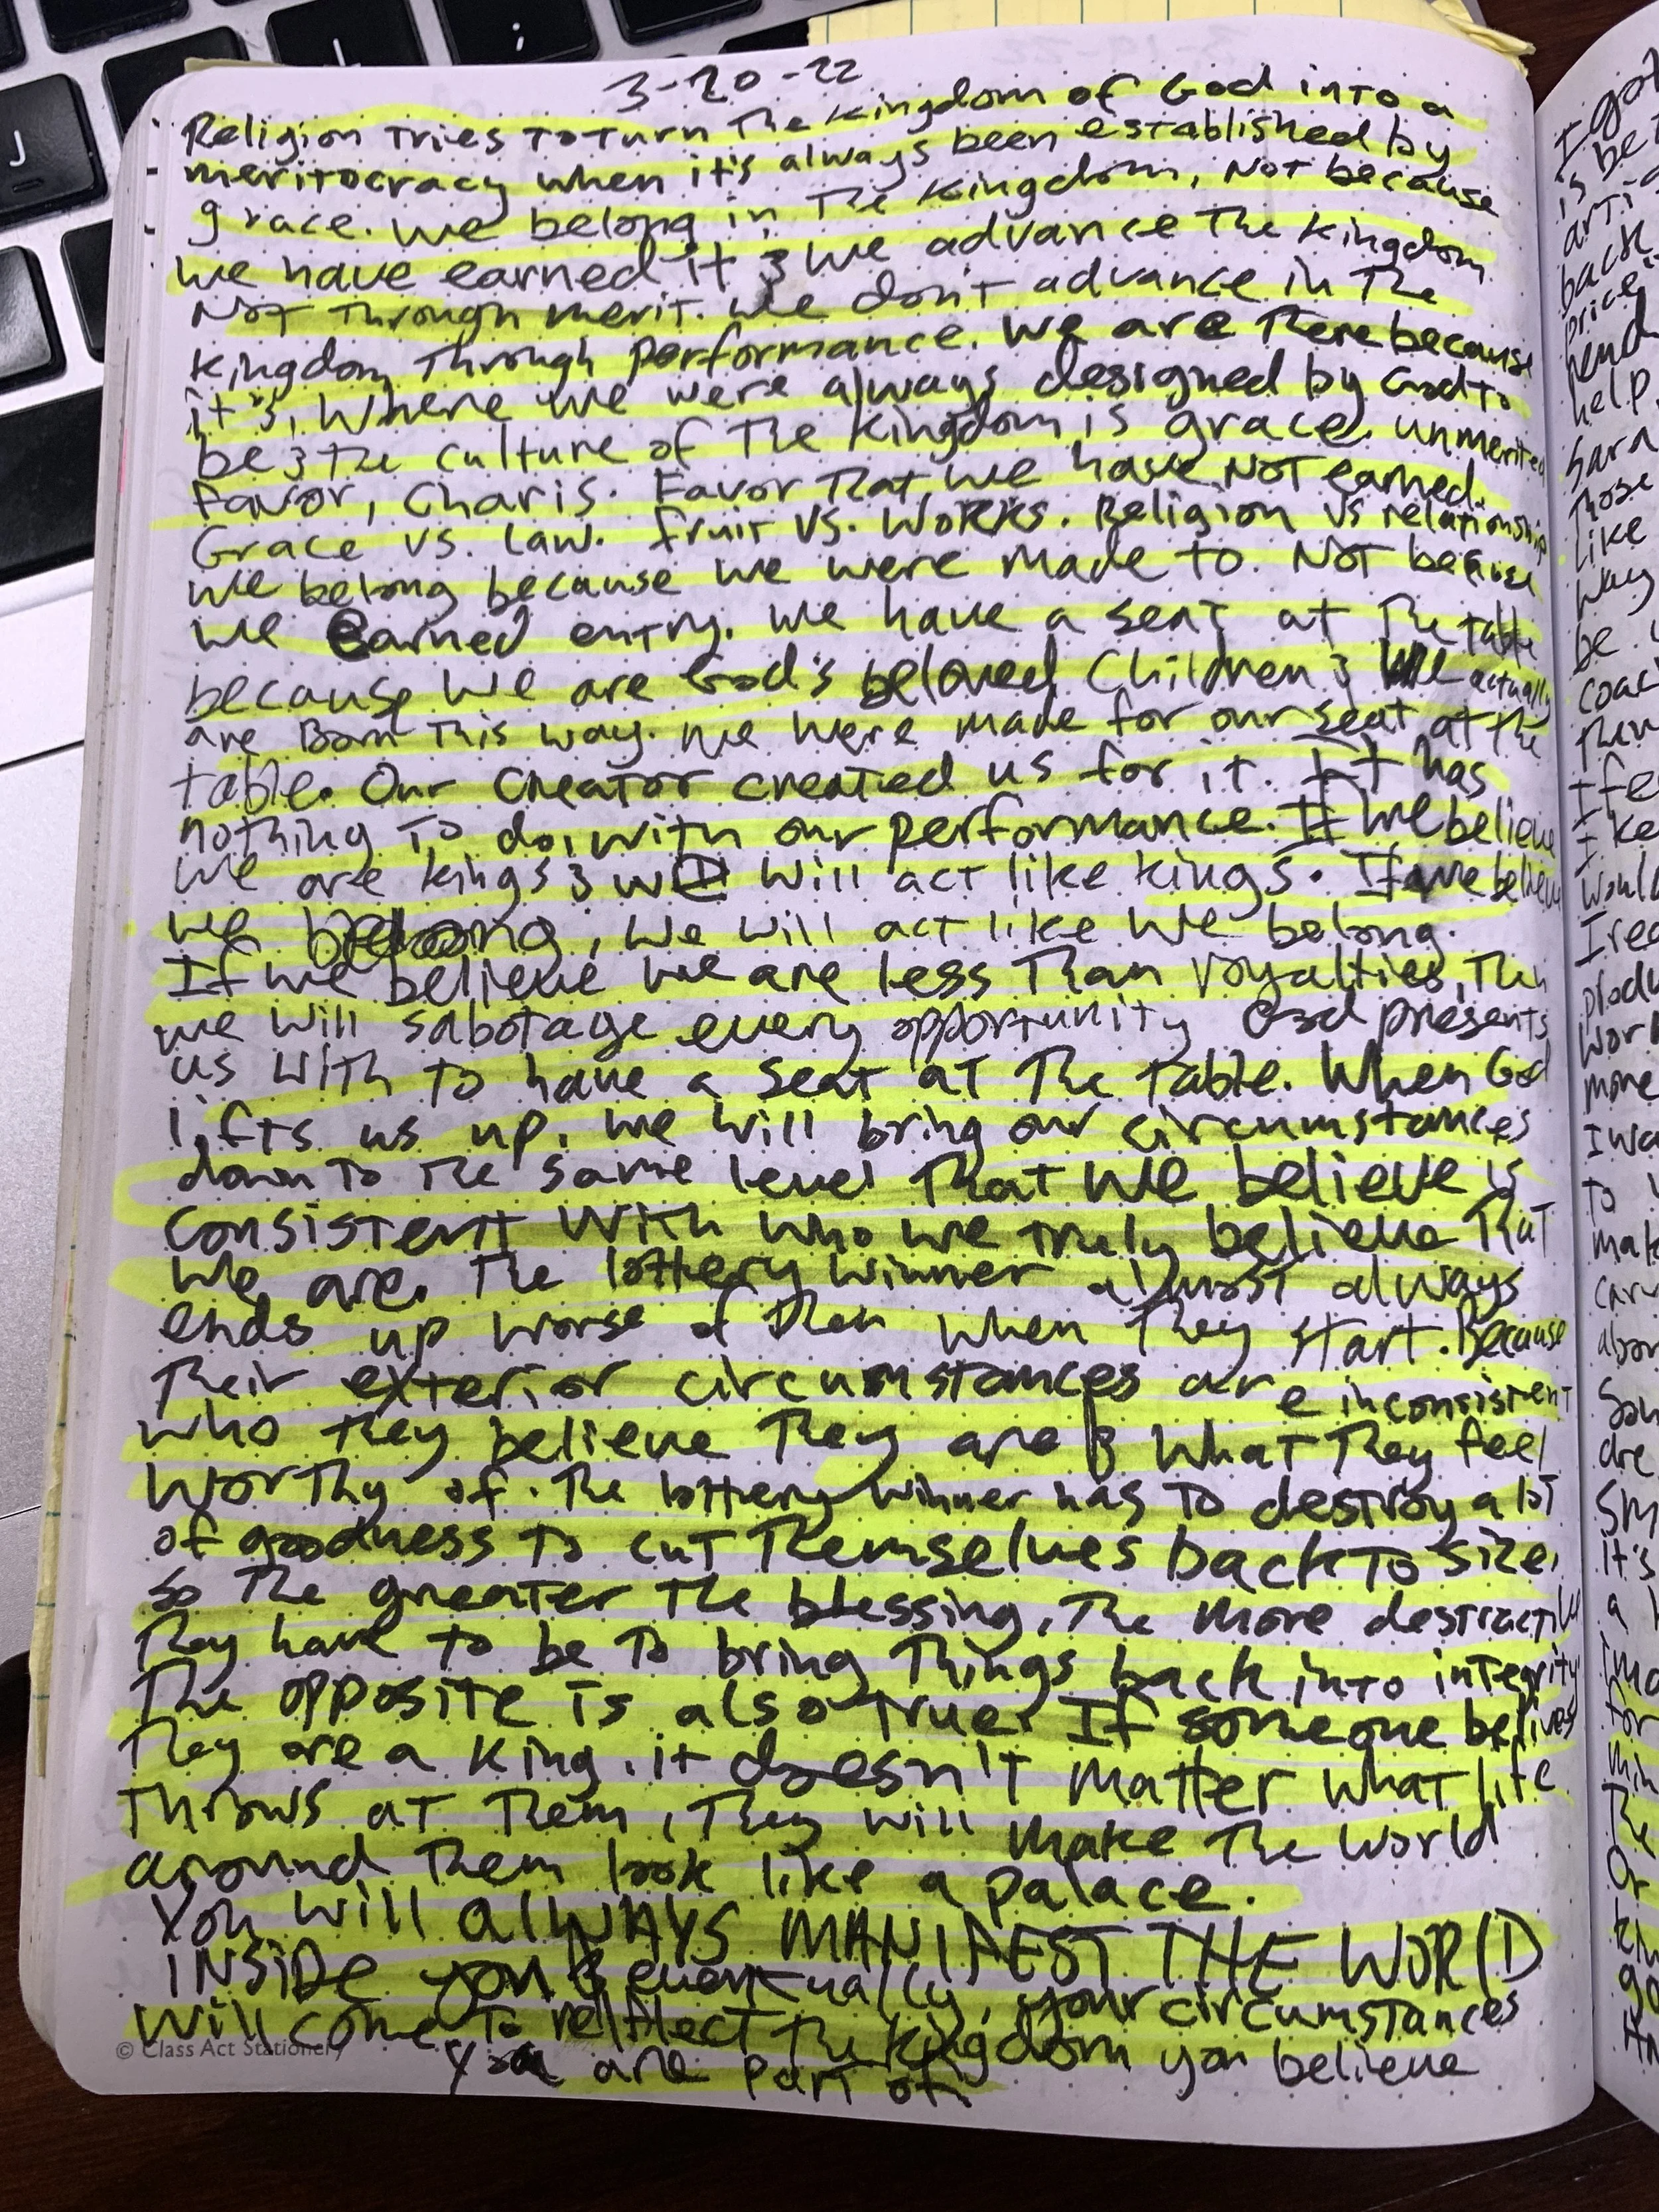 3-20-22
Religion tries to turn the kingdom of God into a
meritocracy when it's always been established by
grace. We belong in the kingdom, Not because
we have earned it & we advance the kingdom
Not through merit. We don't advance in the
kingdom through performance. We are there because
it's, where we were always designed by God to
be & the culture of the kingdom is grace. unmerited
favor, Charis. Favor that we have NOT earned.
Grace vs. law. fruit vs. works. Religion vs relationship
we belong because we were made to. NOT because
we earned entry. We have a seat at the table
because we are God's beloved Children & we actually
are Born this way. we were made for our seat at the
table. Our creator created us for it. It has
nothing to do, with our performance. If we believe
we are kings & we will act like kings. If we believe
we belong, we will act like we belong.
If we believe we are less than royalties, then
we will sabotage every opportunity God presents
us with to have a seat at the table. When God
lifts us up, we will bring our circumstances
down to the same level that we believe is
consistent with who we truly believe that
we are. The lottery winner almost always
ends up worse of then when they start. Because
their exterior circumstances are inconsistent
who they believe they are & what they feel
worthy of. The lottery winner has to destroy a lot
of goodness to cut themselves back to size,
so the greater the blessing, the more destructive
they have to be to bring things back into integrity.
The opposite is also true. If someone belives
they are a king, it doesn't matter what life
throws at them, they will make the world
around them look like a palace.
You will alWAYS MANIFEST THE WORlD
INSiDe you & eventually, your circumstances
will come to relflect the kingdom you believe
you are part of.
© Class Act Stationery
J
L
I got
is be
arti
back
price
help
hard
those
like
way
be
coac
then
I fe
I ke
would
I rea
produ
work
more
I wa
to
mak
abou
are
Sm
it's
a
for
min
The
Or
kin
go